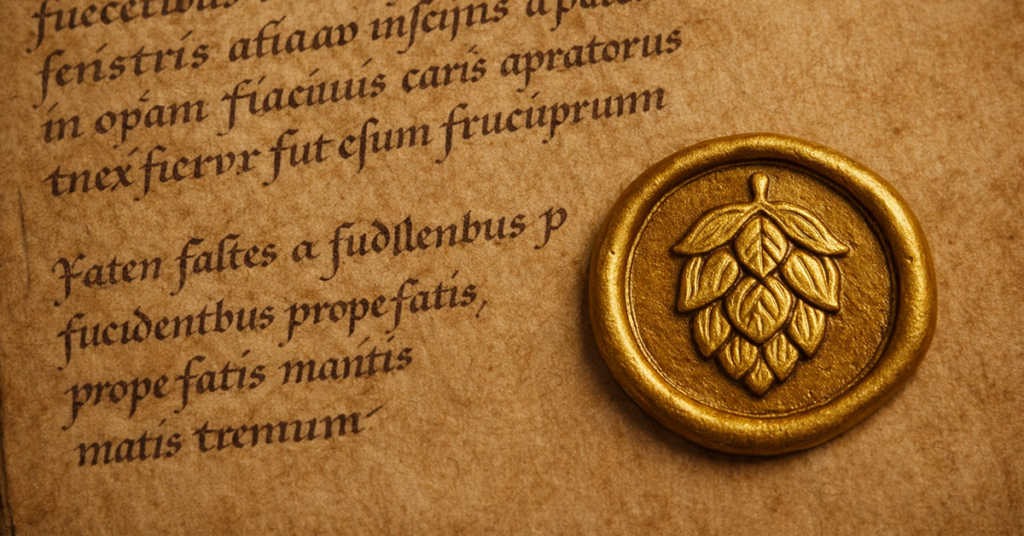 feristris afiaav inscijns
in opam fiaciuuis caris apratorus
tnex fiervr fut esum frucuprunn
Faten faltes a fudllenbus p
fucidentbus prope fatis,
prope fatis mantis
matis tremum